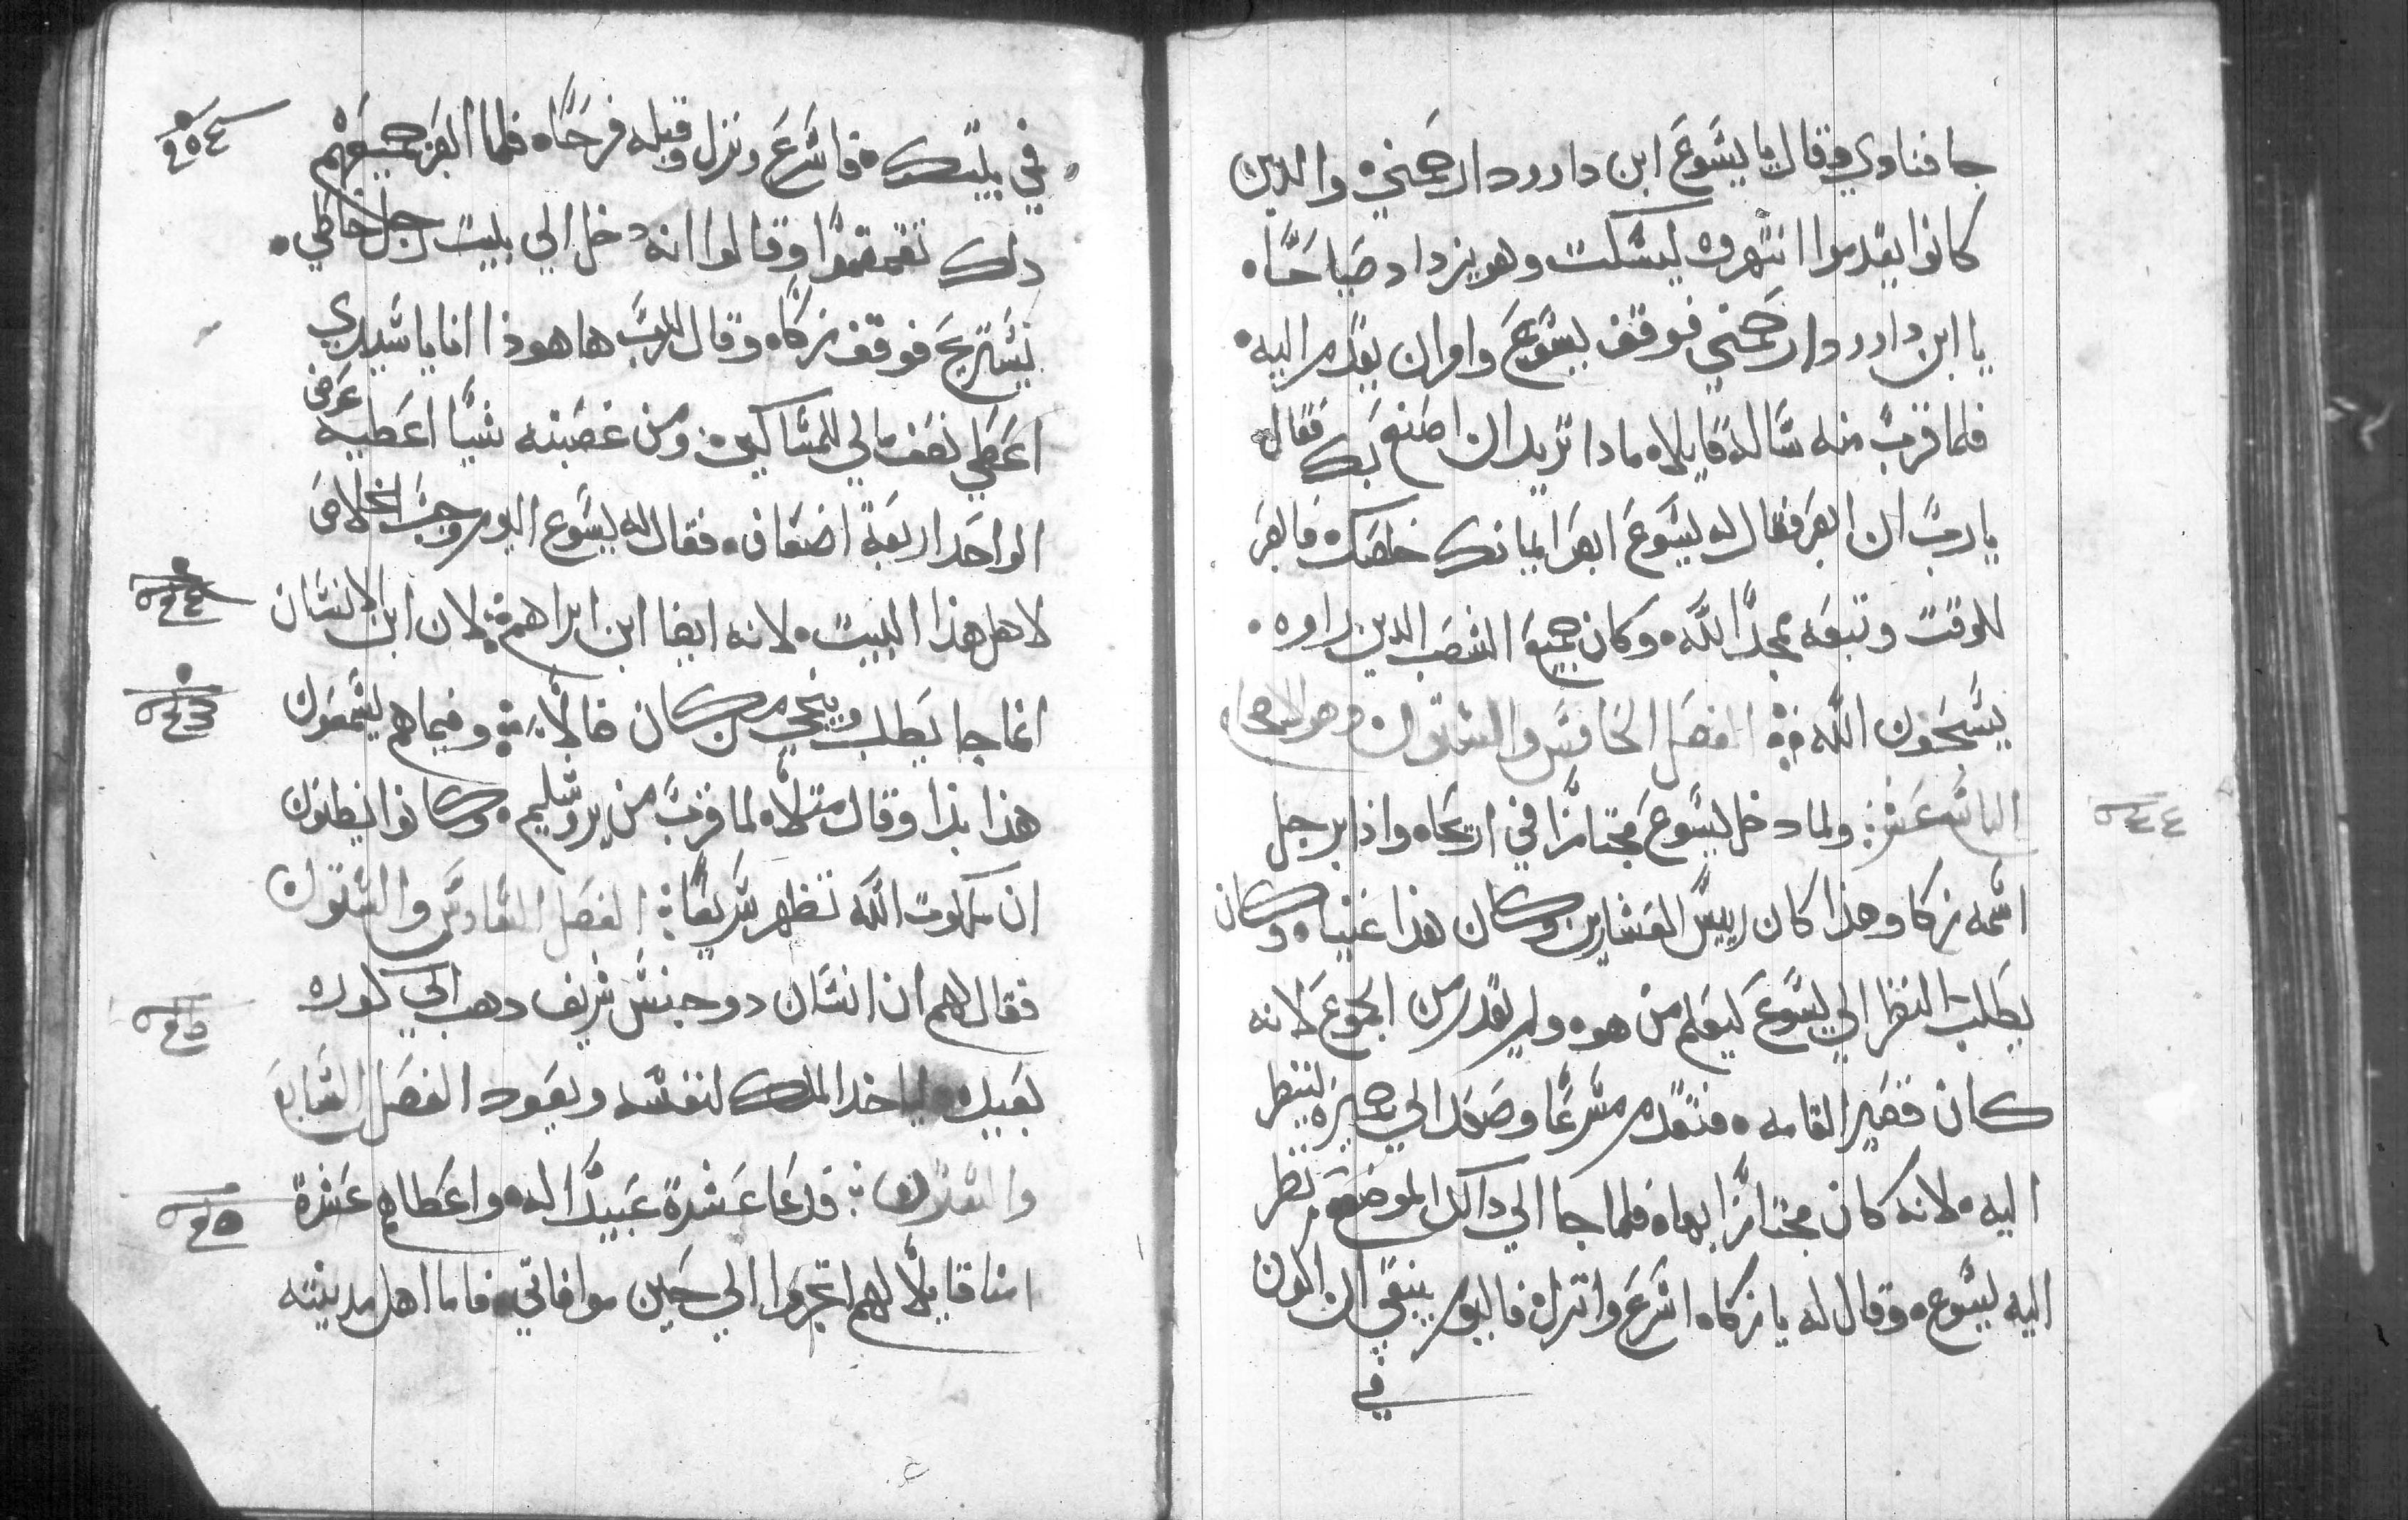 جا فنادي وقال يا يسوع ابن داوود ارحمني والدين
كانوا يقدموا انتهروه ليسكت وهو يزداد صياحًا
يا ابن داوود ارحمني فوقف يسوع وامر ان يقدم اليه
فلما قرب منه ساله قايلا ماذا تريد ان اصنع بك فقال
يا رب ان ابصر فقال له يسوع ابصر ايمانك خلصك فابصر
للوقت وتبعه يمجد الله وكان جميع الشعب الدين راوه
يسبحون الله الفصل الخامس والستون وهو الاصحاح
التاسع عشر ولما دخل يسوع مجتازًا في اريحا واذا برجل
٤٤
اسمه زكا وهذا كان رييس العشارين وكان هذا غنيا وكان
يطلب النظر الي يسوع ليعلم من هو ولم يقدر من الجموع لانه
كان قصير القامه فتقدم مسرعًا وصعد الي جميزه لينظر
اليه لانه كان مجتازًا بها فلما جا الي ذالك الموضع نظر
اليه يسوع وقال له يا زكا اسرع وانزل فاليوم ينبغي ان اكون
في
في بيتك فاسرع ونزل وقبله فرحًا فلما ابصر جميعهم
دلك تقمقموا وقالوا انه دخل الي بيت رجل خاطي
يستريح فوقف زكا وقال للرب ها هوذا انا يا سيدي
اعطي نصف مالي للمساكين ومن غصبته شيا اعطيه عوض
الواحد اربعة اضعاف فقال له يسوع اليوم وجب الخلاص
لاهل هذا البيت لانه ايضا ابن ابراهيم لان ابن الانسان
انما جا يطلب وينجي من كان ضالًا وفيما هم يسمعون
هذا بدا وقال مثلا لما قرب من يروشليم وكانوا يظنون
ان ملكوت الله تظهر سريعًا الفصل السادس والستون
فقال لهم ان انسان دو جنس شريف دهب الي كوره
بعيده لياخد الملك لنفسه ويعود الفصل السابع
والستون فدعا عشرة عبيدًا له واعطاهم عشرة
امنا قايلًا لهم اتجروا الي حين موافاتي فاما اهل مدينته